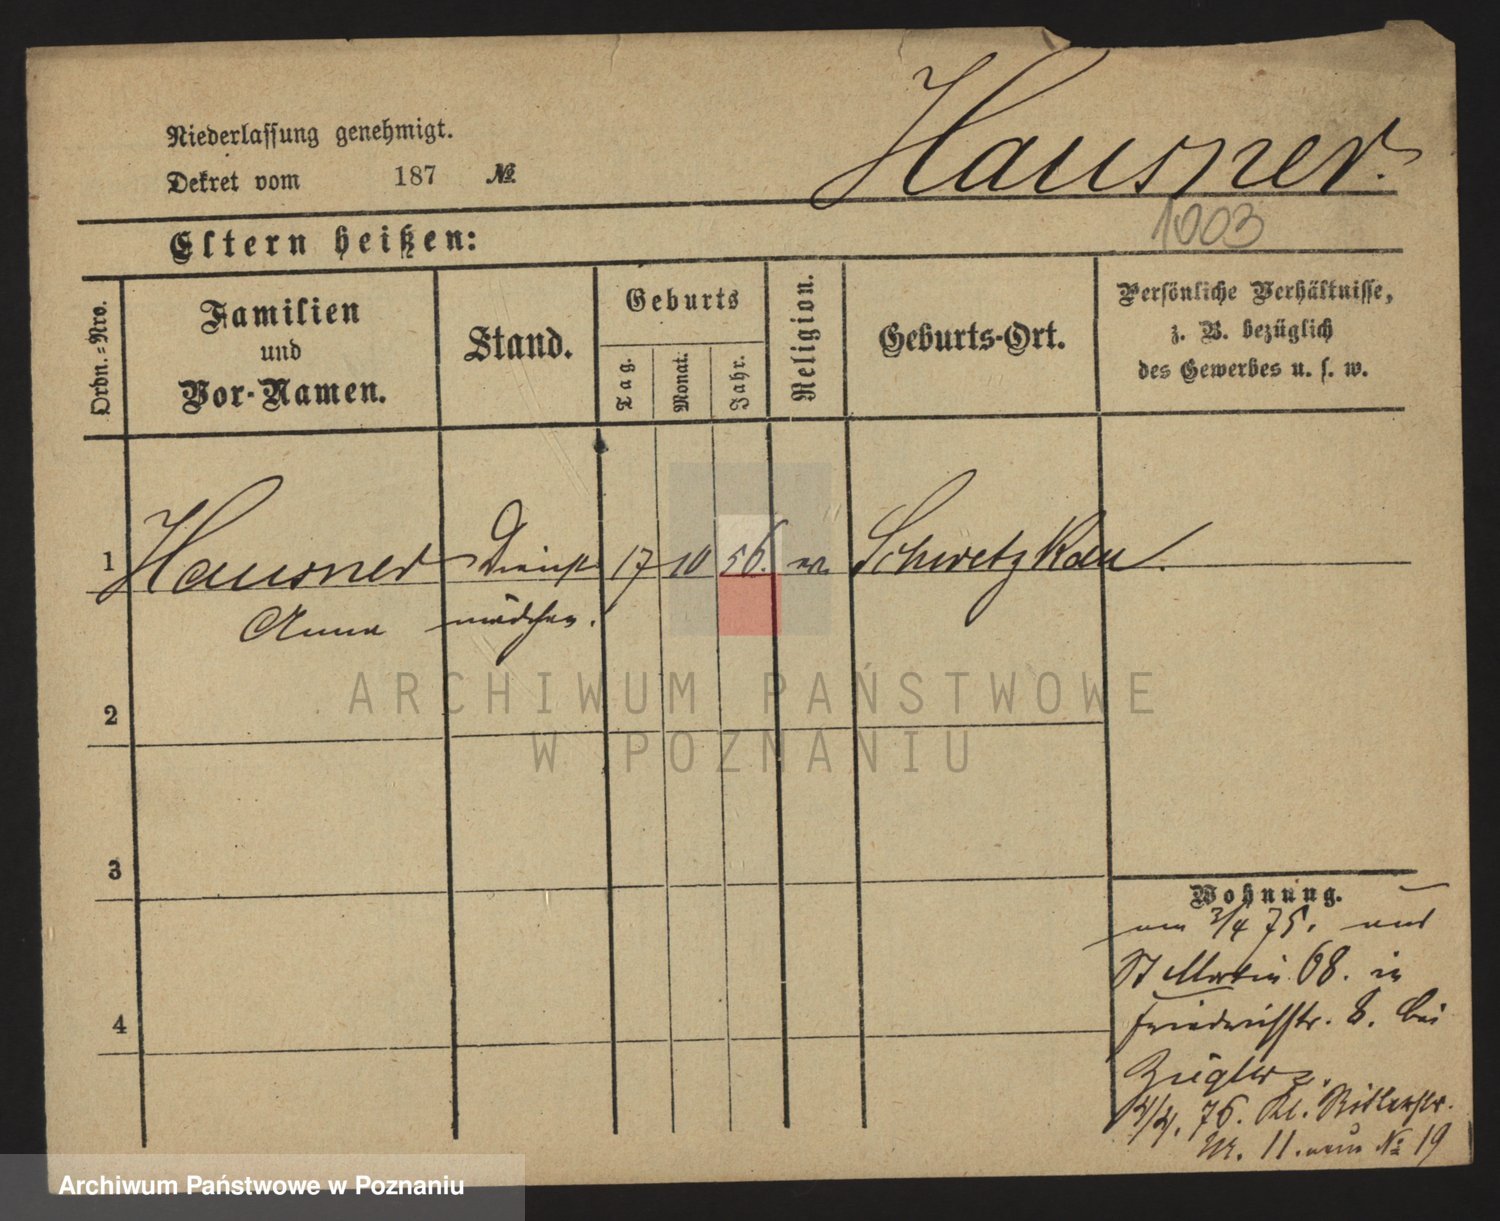 Niederlassung genehmigt.
Dekret vom 187 №
Hausner.
1003
Eltern heißen:
Ordn.-Nro.
Familien und Vor-Namen.
Stand.
Geburts
Tag.
Monat.
Jahr.
Religion.
Geburts-Ort.
Persönliche Verhältnisse,
z. B. bezüglich
des Gewerbes u. s. w.
1 Hausner Dienst 17 10 56. ev. Schwetzkau.
Anna mädchen.
2
3
4
Wohnung.
am 3/4 75. aus
St Martin 68. in
Friedrichstr. 8. bei
Ziegler
4/4. 76. Kl. Ritterstr.
Nr. 11. neue № 19
ARCHIWUM PAŃSTWOWE
W POZNANIU
Archiwum Państwowe w Poznaniu